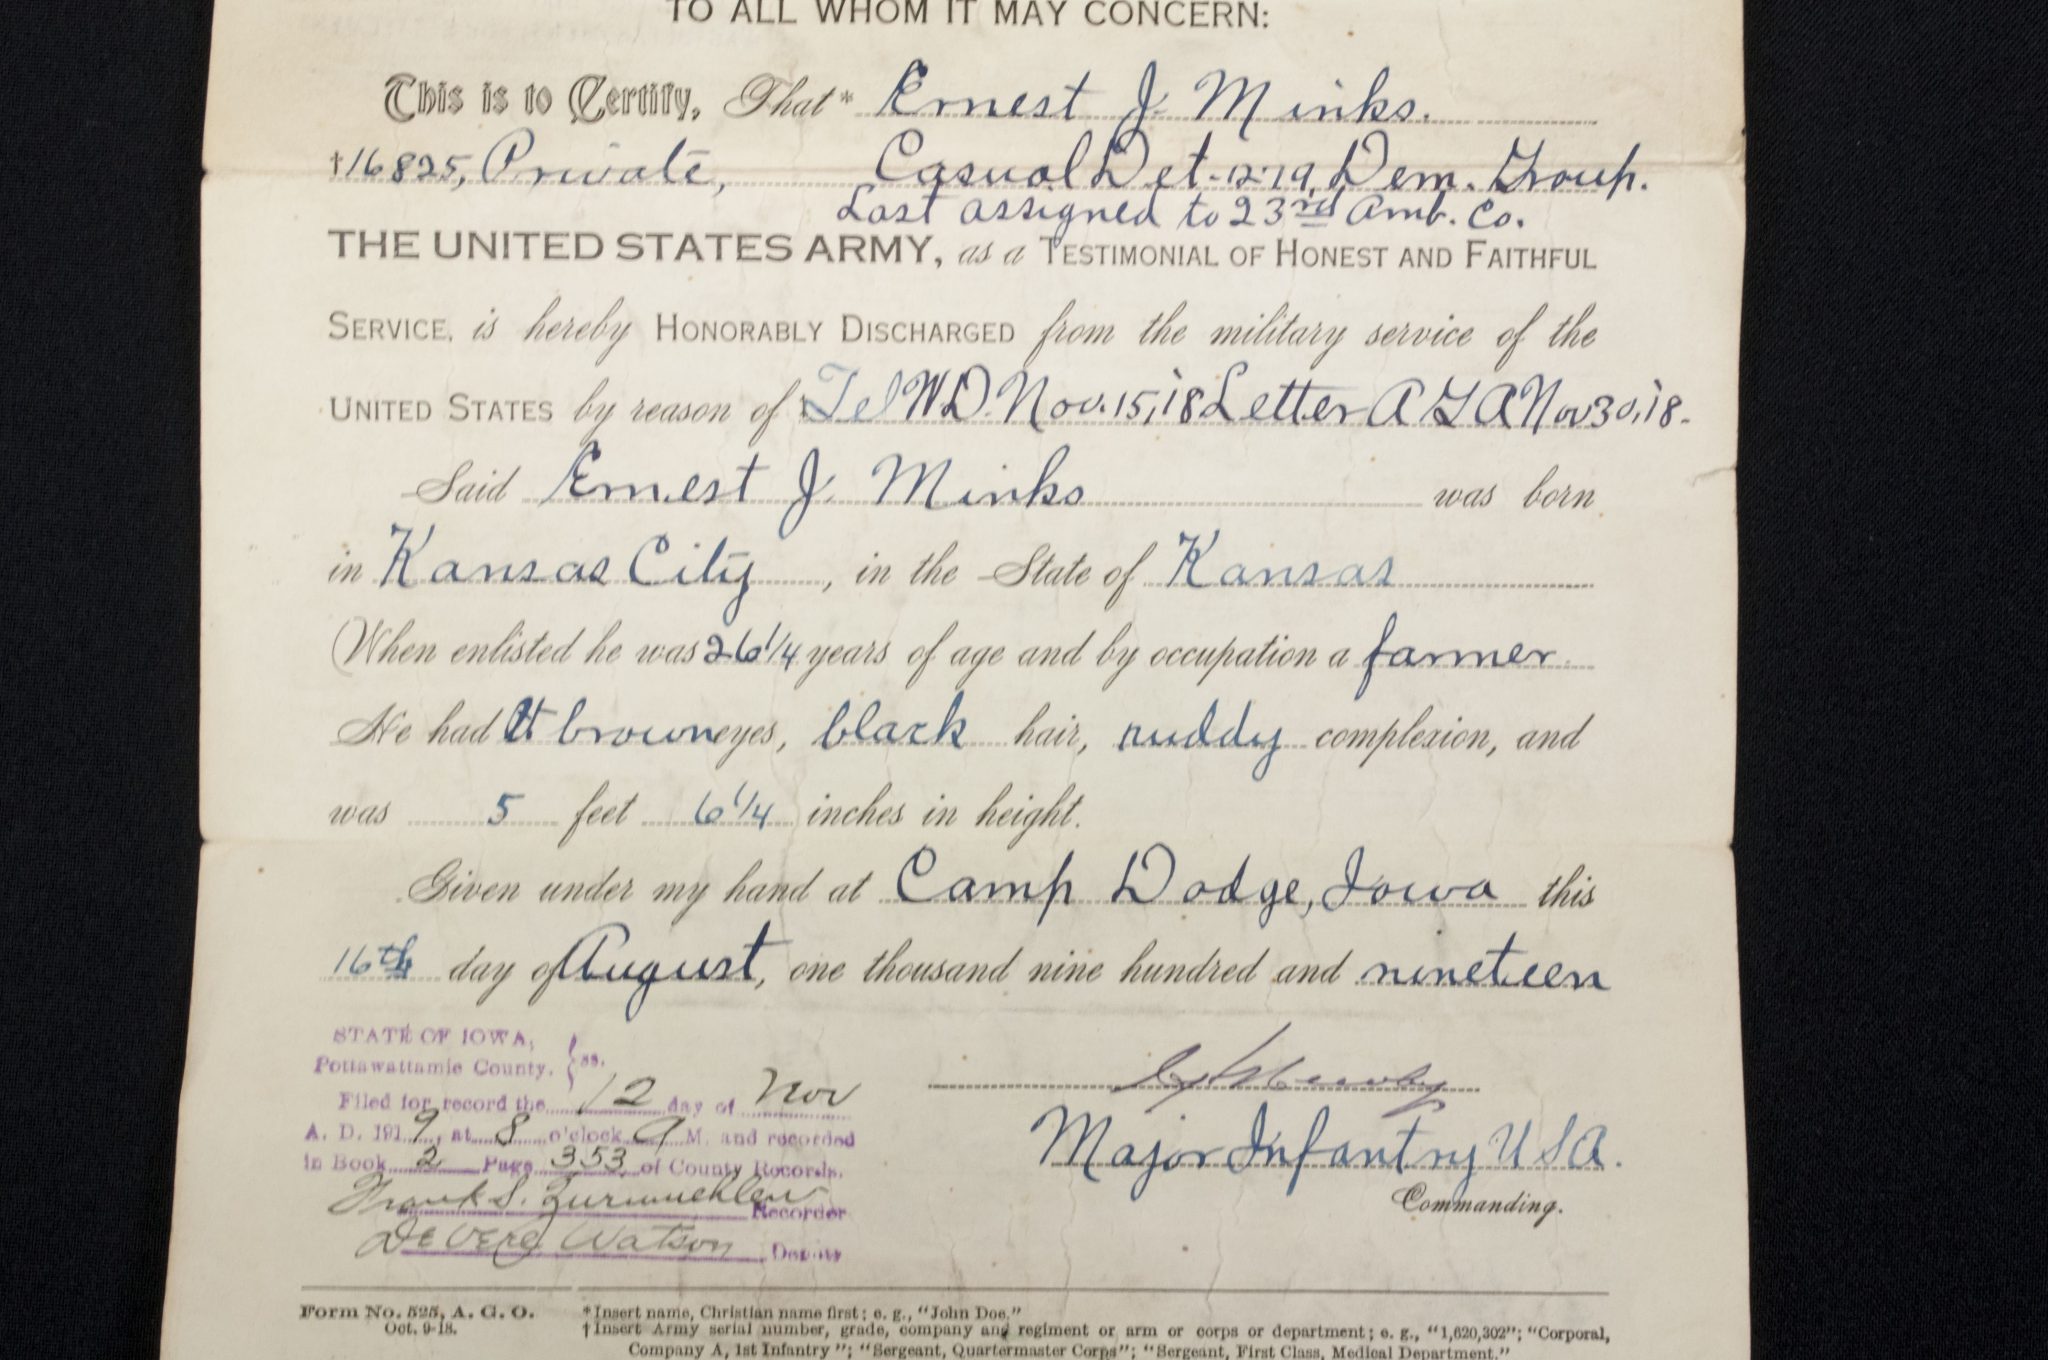 TO ALL WHOM IT MAY CONCERN:
This is to Certify, That* Ernest J. Minks.
†16825, Private, Casual Det. 1219, Dem. Group.
Last assigned to 23rd Amb. Co.
THE UNITED STATES ARMY, as a TESTIMONIAL OF HONEST AND FAITHFUL
SERVICE, is hereby HONORABLY DISCHARGED from the military service of the
UNITED STATES by reason of Tel W.D. Nov. 15, '18 Letter A G A Nov 30, '18.
Said Ernest J. Minks was born
in Kansas City, in the State of Kansas
(When enlisted he was 26 1/4 years of age and by occupation a farmer.
He had lt brown eyes, black hair, ruddy complexion, and
was 5 feet 6 1/4 inches in height.
Given under my hand at Camp Dodge, Iowa this
16th day of August, one thousand nine hundred and nineteen
STATE OF IOWA,
Pottawattamie County. } ss.
Filed for record the 12 day of Nov
A. D. 1919, at 8 o'clock A M. and recorded
in Book 2 Page 353 of County Records.
Frank S. Zurmuehlen Recorder
DeVere Watson, Deputy
Major Infantry U S A.
Commanding.
Form No. 525, A. G. O.
Oct. 9-18.
*Insert name, Christian name first; e. g., "John Doe."
†Insert Army serial number, grade, company and regiment or arm or corps or department; e. g., "1,620,302"; "Corporal,
Company A, 1st Infantry"; "Sergeant, Quartermaster Corps"; "Sergeant, First Class, Medical Department."